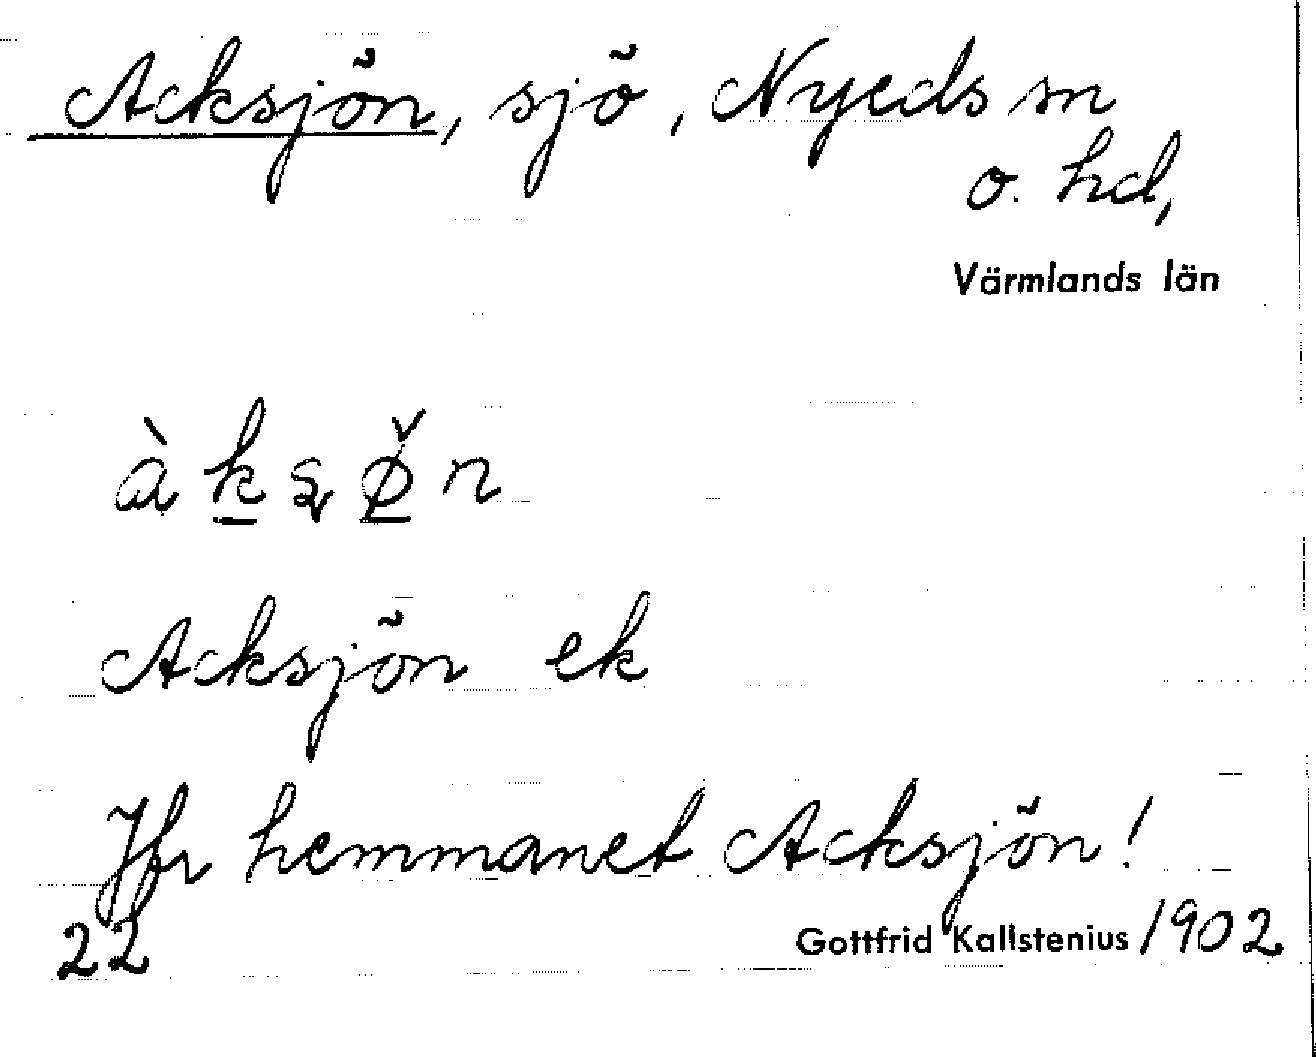 Acksjön, sjö, Nyeds sn
o. hd,
Värmlands län
àkʂø̌n
Acksjön ek
Jfr hemmanet Acksjön!
22
Gottfrid Kallstenius 1902